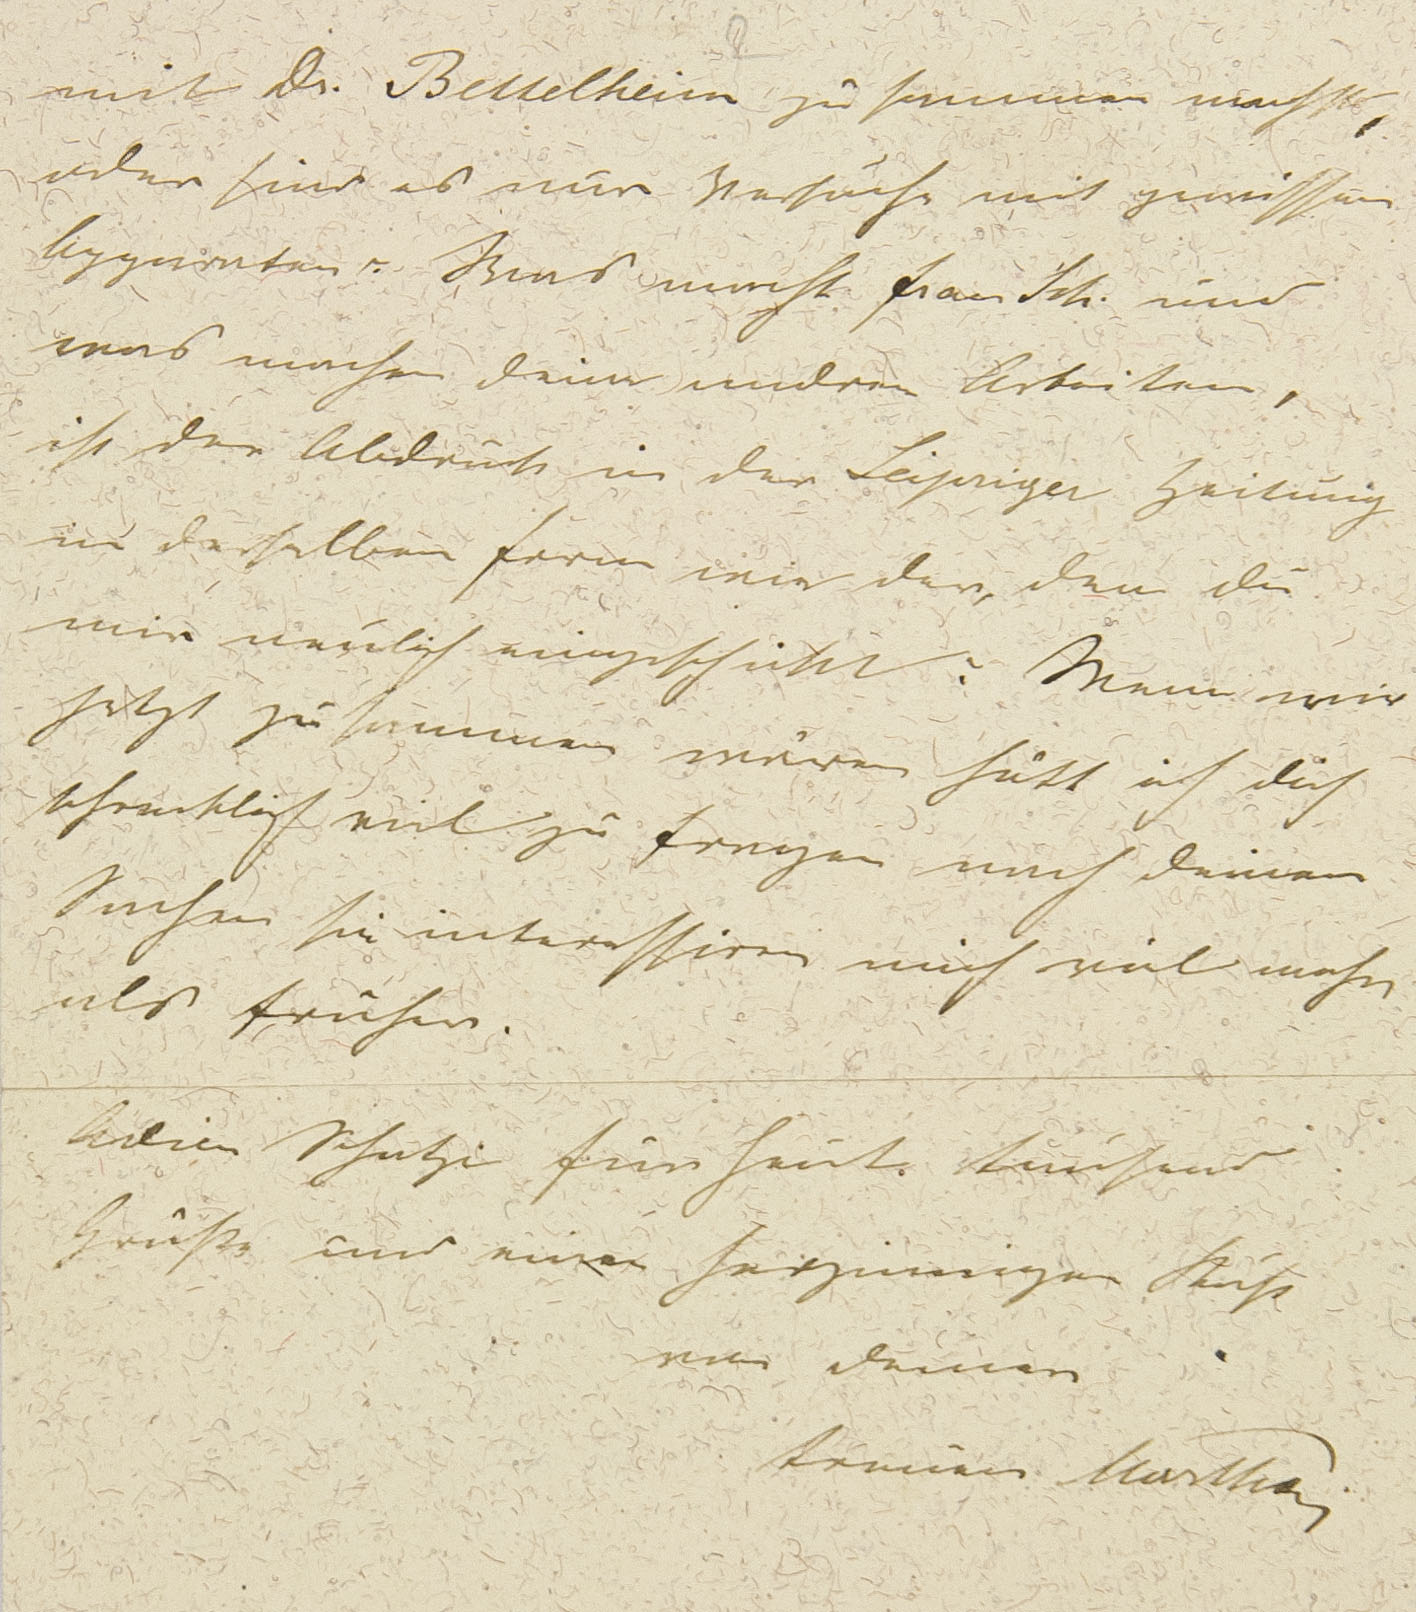 2
mit Dr. Bettelheim zusammen machst,
oder sind es nur Versuche mit gewissen
Apparaten? Was macht Frau Sch. und
was machen Deine andren Arbeiten,
ist der Abdruck in der Leipziger Zeitung
in derselben Form wie der, den Du
mir neulich eingeschickt? Wenn wir
jetzt zusammen wären hätt ich Dich
schrecklich viel zu fragen nach Deinen
Sachen sie interessiren mich viel mehr
als früher.
Adieu Schatzi für heut. Tausend
Grüße und einen herzinnigen Kuß
von Deiner
treuen Martha